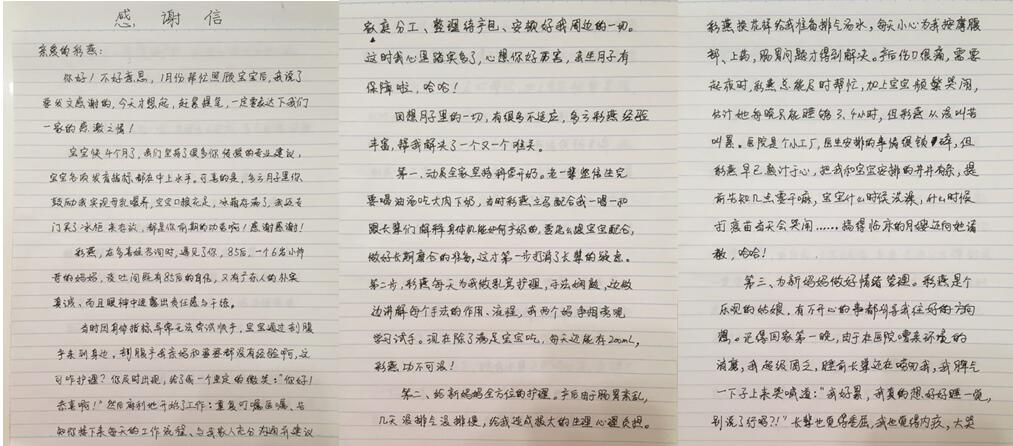 感谢信
亲爱的彩燕:
你好!不好意思,1月份帮忙照顾宝宝后,我说了
要发文感谢的,今天才想起,赶紧提笔,一定要表达下我们
一家的感激之情!
宝宝快4个月了,我们坚持了很多你传授的专业建议,
宝宝各项发育指标都在中上水平。可喜的是,多亏月子里你
鼓励我实现母乳喂养,宝宝口粮充足,冰箱存满了,我还专
门买了冰柜来存放,都是你前期的功劳啊!感谢感谢!
彩燕,在多喜娃咨询时,遇见了你,85后,一个6岁小帅
哥的妈妈,谈吐间既有85后的自信,又有广东人的朴实
真诚、而且眼神中透露出责任感与干练。
当时因身体指标异常无法尝试顺产,宝宝通过剖腹
手术到身边。剖腹产我亲妈和婆婆都没有经验啊,这
可咋护理?你及时出现,给了我一个坚定的微笑:"你好!
恭喜啊!"然后麻利地开始了工作:重复叮嘱医嘱、告
知你接下来每天的工作流程、与我家人充分沟通并建议
家庭分工、整理待产包、安抚好我周边的一切。
这时我心里踏实多了,心想你好厉害,我坐月子有
保障啦,哈哈!
回想月子里的一切,有很多不适应,多亏彩燕经验
丰富,替我解决了一个又一个难关。
第一、动员全家坚持科学开奶。老一辈坚信住完
要喝油汤吃大肉下奶,当时彩燕立马配合我一唱一和
跟长辈们解释身体机能如何产奶的,要怎么跟宝宝配合,
做好长期磨合的准备,这才第一步打消了长辈的疑虑。
第二步,彩燕每天为我做乳房护理,手法娴熟,边做
边讲解每个手法的作用、流程,我两个妈争相表现
学习试手。现在除了满足宝宝吃,每天还能存200ml,
彩燕功不可没!
第二、给新妈妈全方位的护理。产后由于肠胃紊乱,
几天没排气没排便,给我造成极大的生理心理负担。
彩燕换花样给我准备排气汤水,每天小心为我按摩腹
部、上药,肠胃问题才得到解决。产后伤口很痛,需要
起夜时,彩燕总能及时帮忙,加上宝宝频繁哭闹,
估计她每晚只能睡够3、4小时,但彩燕从没叫苦
叫累。医院是个小工厂,医生安排的事情很锁碎,但
彩燕早已熟计于心,把我和宝宝安排的井井有条,提
前告知几点要干嘛,宝宝什么时候洗澡,什么时候
打疫苗当天会哭闹……搞得临床的月嫂还向她请
教,哈哈!
第三、为新妈妈做好情绪管理。彩燕是个
乐观的姑娘,有不开心的事都引导我往好的方向
想。记得回家第一晚,由于在医院嘈杂环境的
消磨,我超级困乏,睡前长辈还在唠叨我,我脾气
一下子上来哭喊道:"我好累,我真的想好好睡一觉,
别说了行吗?!"长辈也觉得委屈,我也觉得内疚,大哭